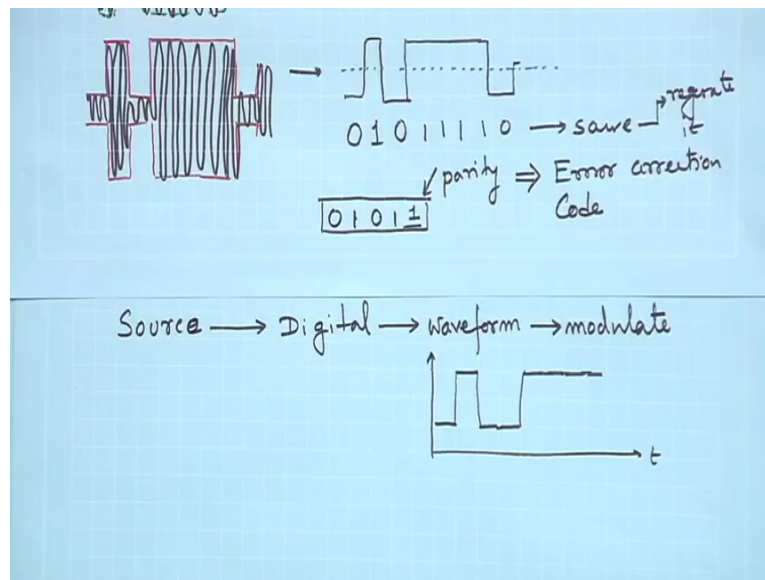 010 11110 → save → regerate it
parity ⇒ Error correction
Code
01011
Source → Digital → Waveform → modulate
t